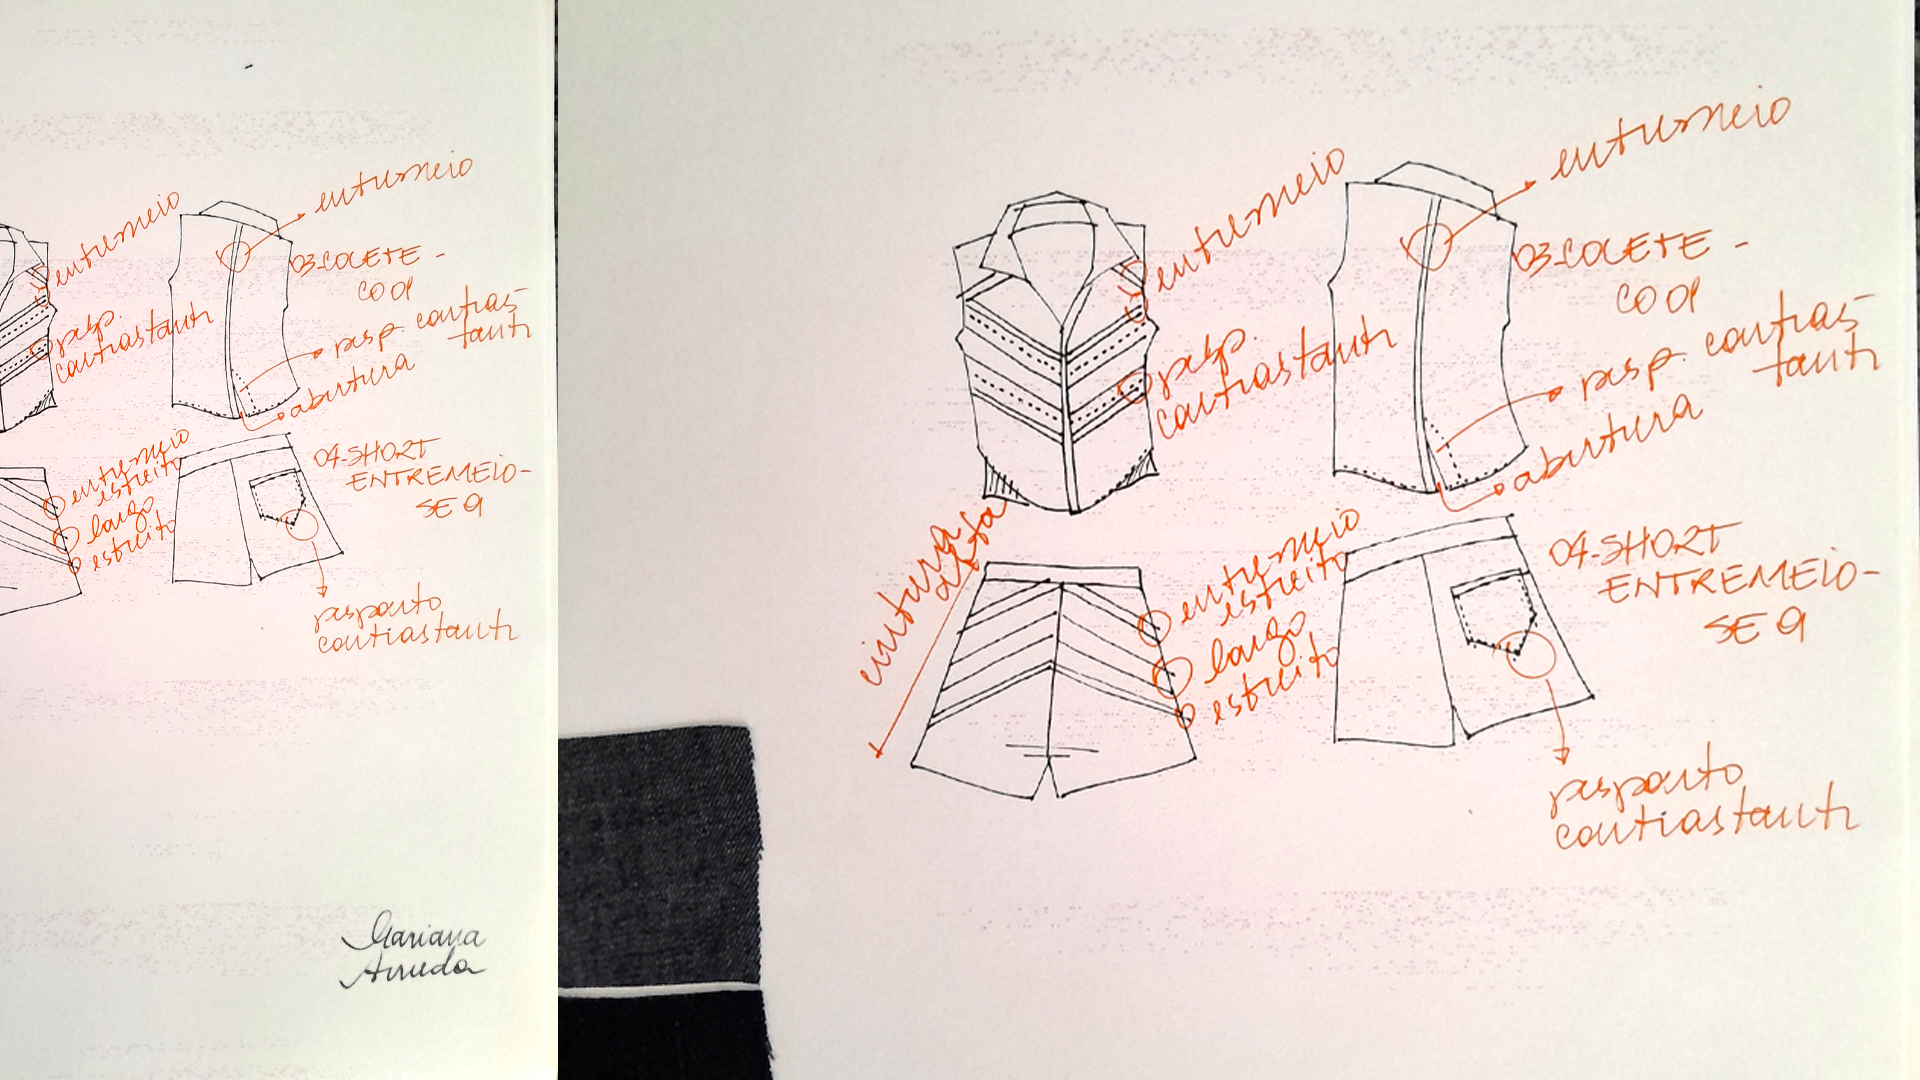 entremeio
entremeio
03-COLETE -
CO 01
pesp.
contrastante
pesp. contras-
tante
abertura
entremeio
estreito
largo
estreito
04-SHORT
ENTREMEIO-
SE 9
pesponto
contrastante
Mariana
Arruda
entremeio
entremeio
03-COLETE -
CO 01
pesp.
contrastante
pesp. contras-
tante
abertura
cintura
alta
entremeio
estreito
largo
estreito
04-SHORT
ENTREMEIO-
SE 9
pesponto
contrastante